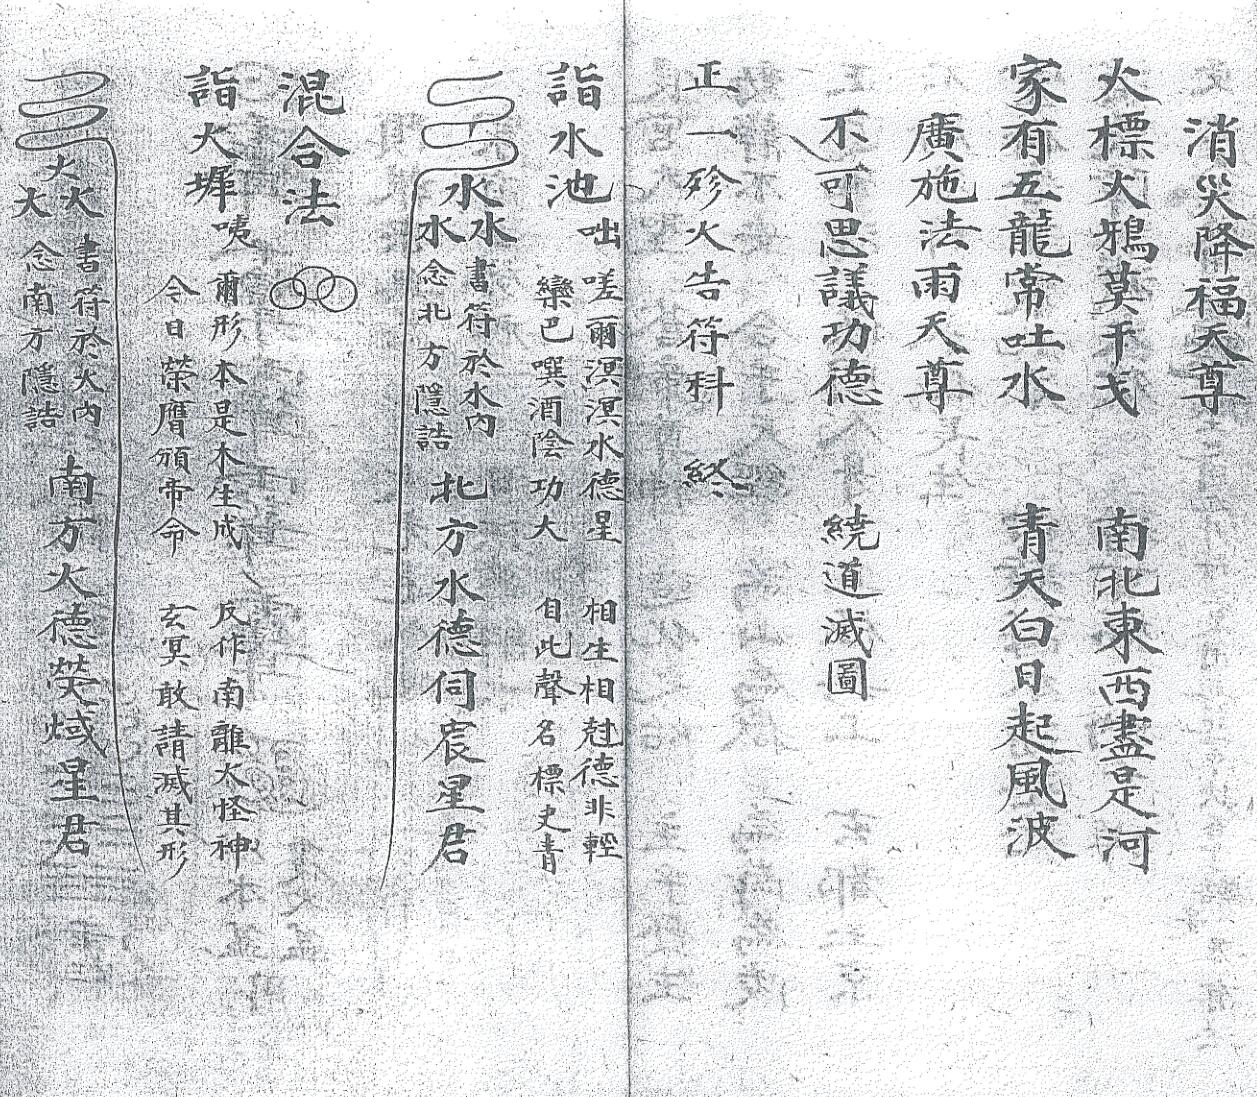 消災降福天尊
火標火鴉莫干戈 南北東西盡是河
家有五龍常吐水 青天白日起風波
廣施法雨天尊
不可思議功德 繞道滅圖
正一殄火告符科 終
詣水池 咄
嗟爾溟溟水德星 相生相尅德非輕
欒巴噀酒陰功大 自此聲名標史青
水水水 書符於水內
念北方隱誥
北方水德伺宸星君
混合法
詣火墀 咦
爾形本是木生成 反作南離火怪神
今日榮膺頒帝命 玄冥敢請滅其形
火火火 書符於火內
念南方隱誥
南方火德熒惑星君